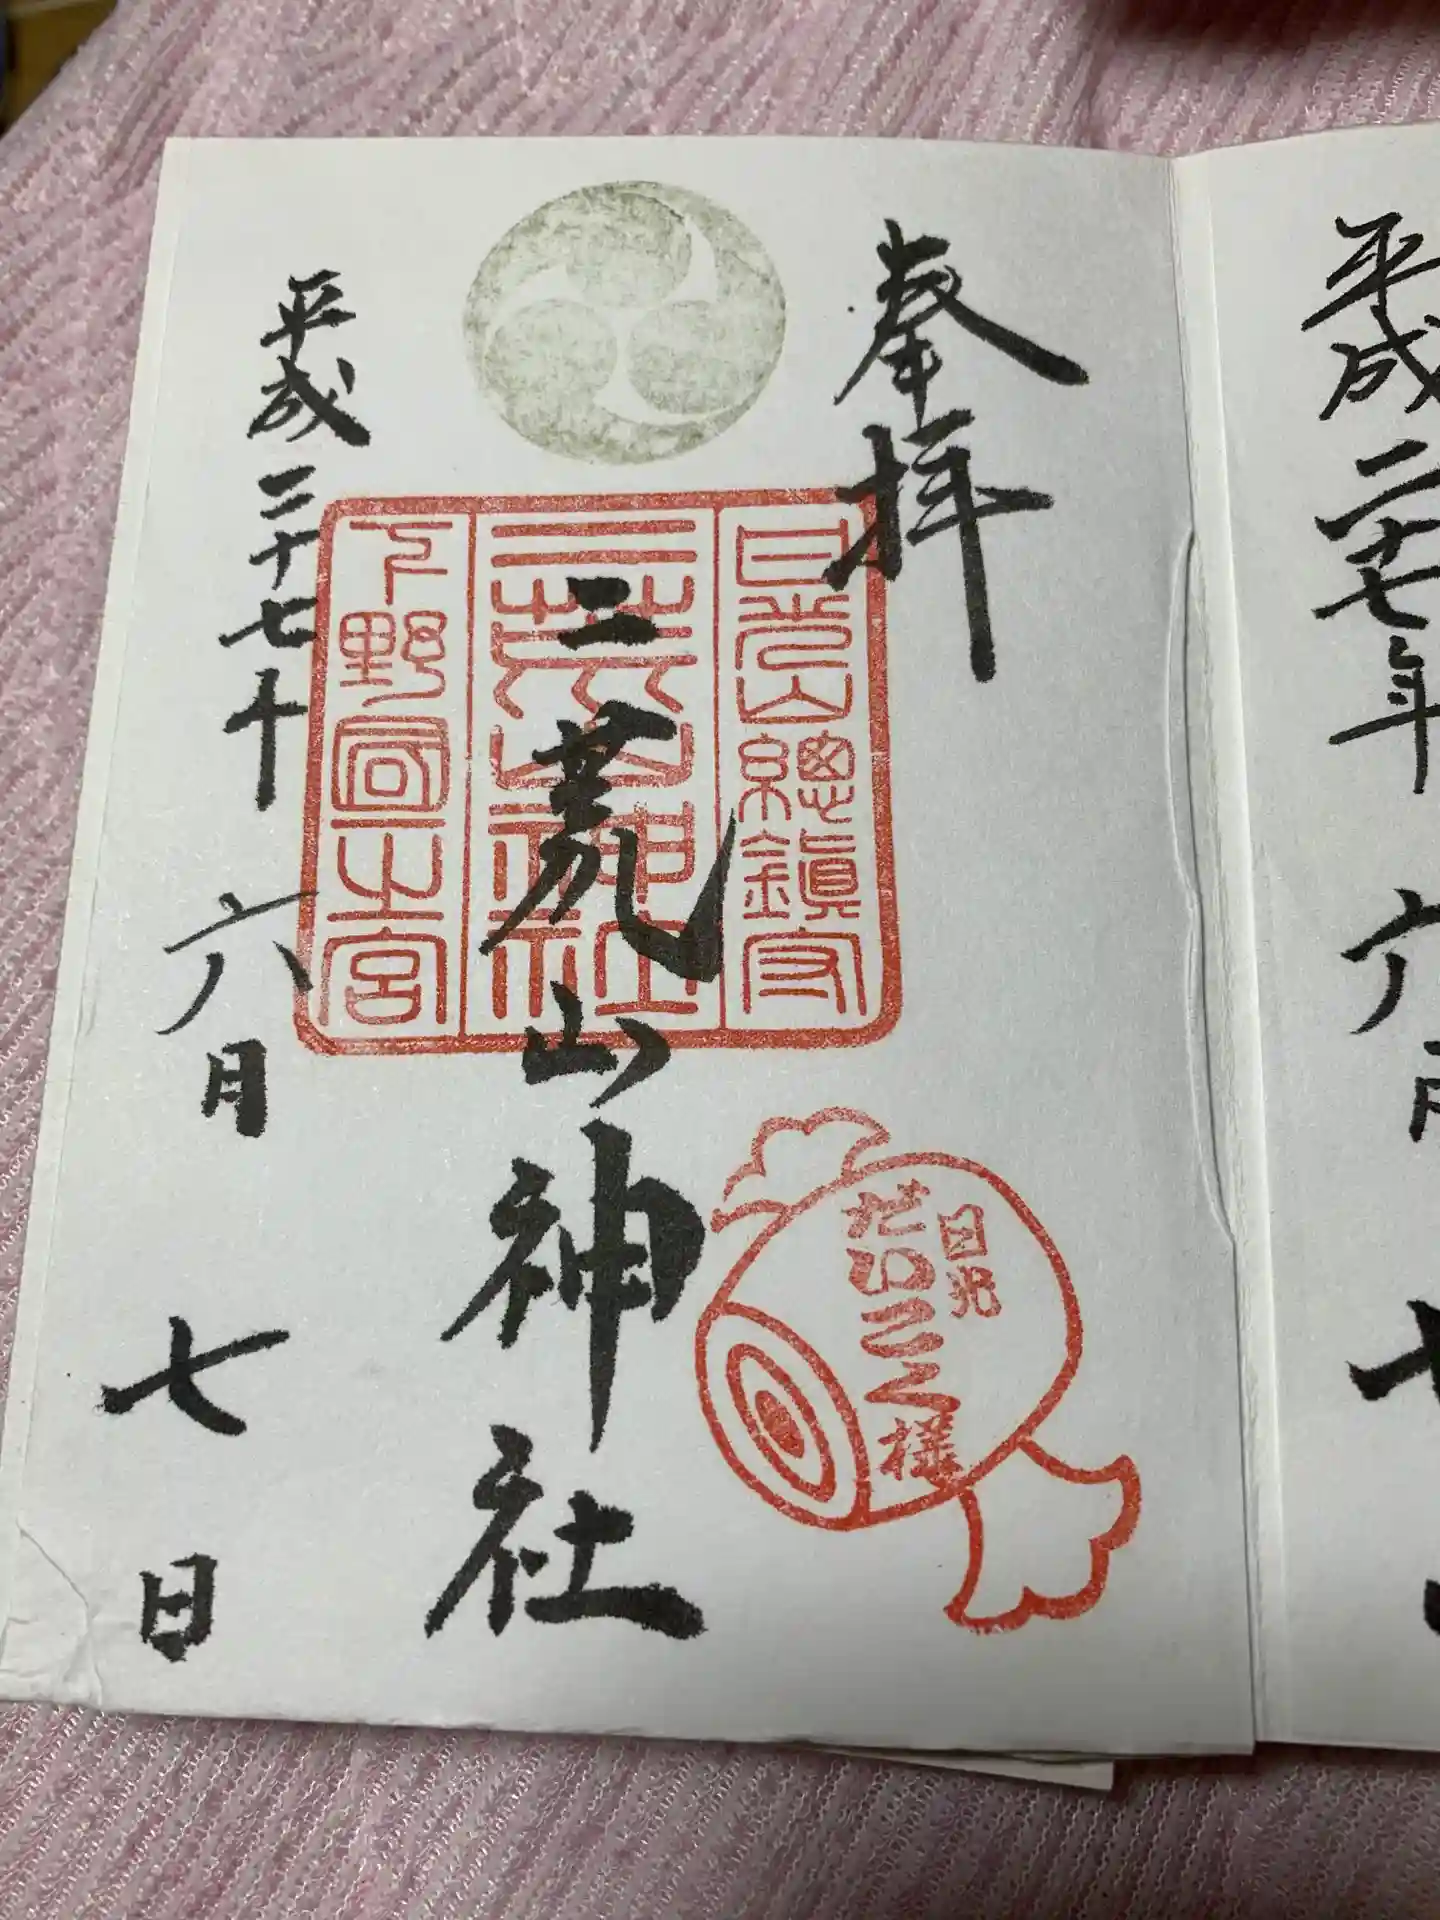 平成二十七年
六月
奉拝
日光山總鎮守
二荒山神社
下野國一之宮
二荒山神社
日光
だいこく様
平成二十七年
六月
七日